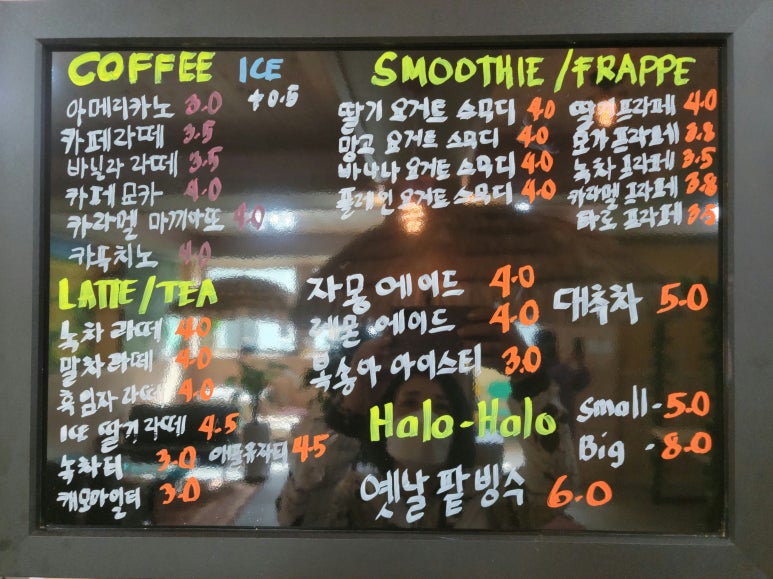 COFFEE ICE
아메리카노 3.0 +0.5
카페라떼 3.5
바닐라 라떼 3.5
카페 모카 4.0
카라멜 마끼아또 4.0
카푸치노 4.0
LATTE/TEA
녹차 라떼 4.0
말차 라떼 4.0
흑임자 라떼 4.0
ICE 딸기 라떼 4.5
녹차티 3.0 애플유자티 4.5
캐모마일티 3.0
SMOOTHIE/FRAPPE
딸기 요거트 스무디 4.0
망고 요거트 스무디 4.0
바나나 요거트 스무디 4.0
플레인 요거트 스무디 4.0
프라페 4.0
모카 프라페 3.8
녹차 프라페 3.5
카라멜 프라페 3.8
타로 프라페 3.5
자몽 에이드 4.0
레몬 에이드 4.0
복숭아 아이스티 3.0
대추차 5.0
Halo-Halo
Small - 5.0
Big - 8.0
옛날 팥빙수 6.0